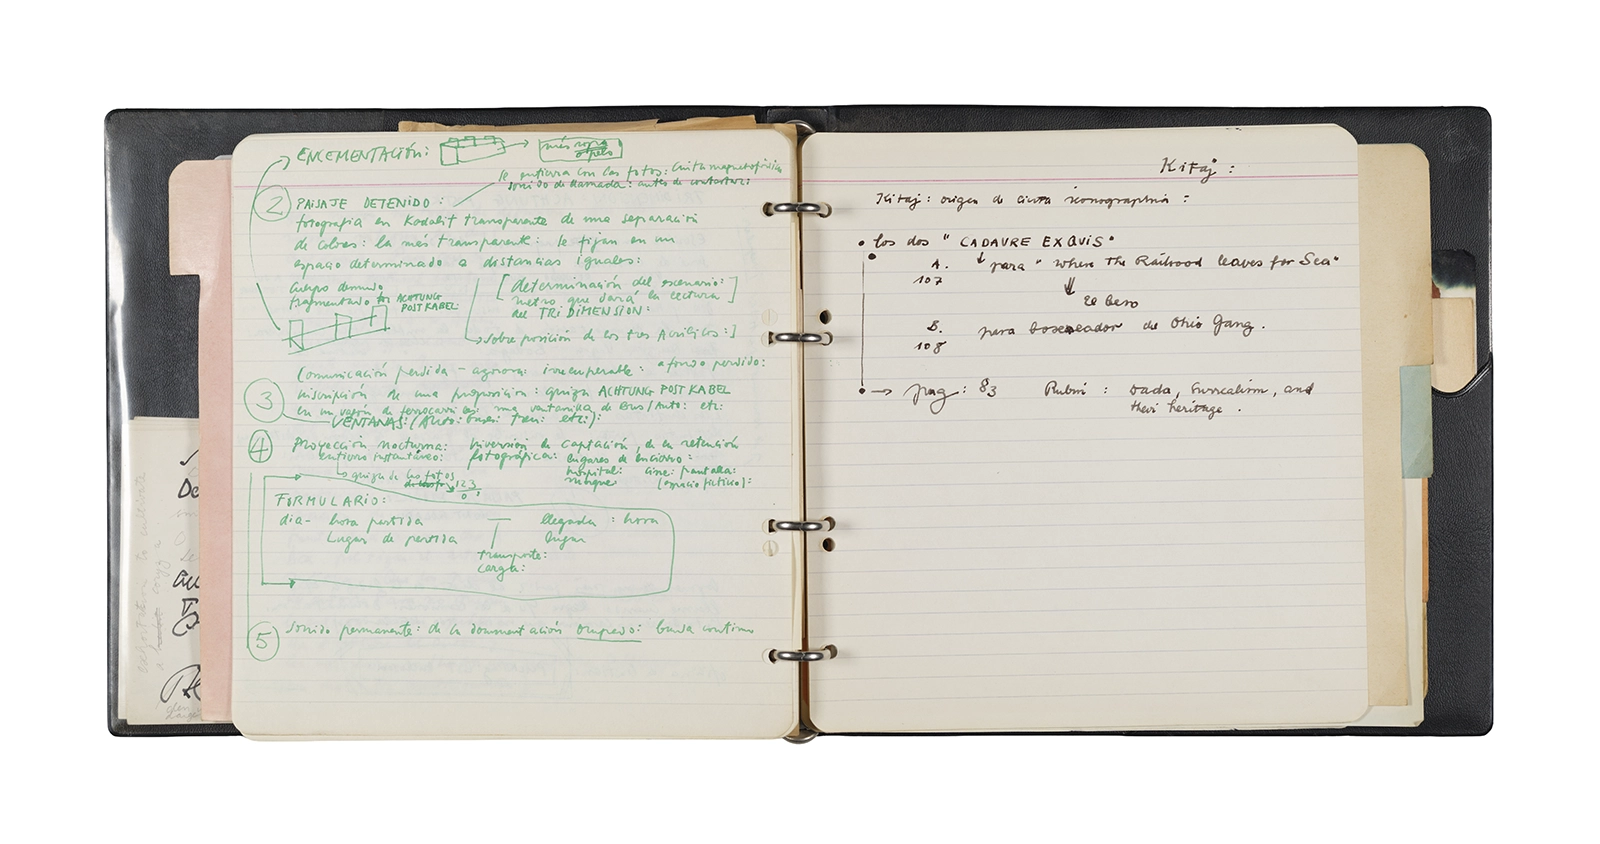 ENCEMENTACIÓN:
más ropa
o pelo
se entierra con las fotos: cinta magnetofónica
sonido de llamada: antes de contestar:
2 PAISAJE DETENIDO:
fotografía en Kodalit transparente de una separación
de colores: la más transparente: se fijan en un
espacio determinado a distancias iguales:
cuerpo desnudo
fragmentado
ACHTUNG
POST KABEL:
[determinación del escenario:
metro que dará la lectura
del TRIDIMENSION:]
sobre posición de los tres Acrílicos:]
Comunicación perdida - agorora: irrecuperable: a fondo perdido:
3 inscripción de una proposición: quizá ACHTUNG POST KABEL
en un vagón de ferrocarril en una ventanilla de bus/auto: etc:
VENTANAS: (Auto: buses: tren: etc.):
4 Proyección nocturna: inversión de captación, de en retención
entierro instantáneo: fotográfica: lugares de encierro:
hospital: cine: pantalla:
morgue: (espacio fictivo):
quizá de las fotos
123
0
FORMULARIO:
dia- hora partida llegada: hora
Lugar de partida lugar
transporte:
carga:
5 Sonido permanente: de la documentación ocupado: banda continua
Kitaj:
Kitaj: origen de cierta iconographia:
• los dos "CADAVRE EXQUIS"
A. para "where the Railroad leaves for Sea"
107
El beso
B. para boxeador de Ohio Gang.
108
• → pag: 83 Rubin: Dada, Surrealism, and
their heritage.
De